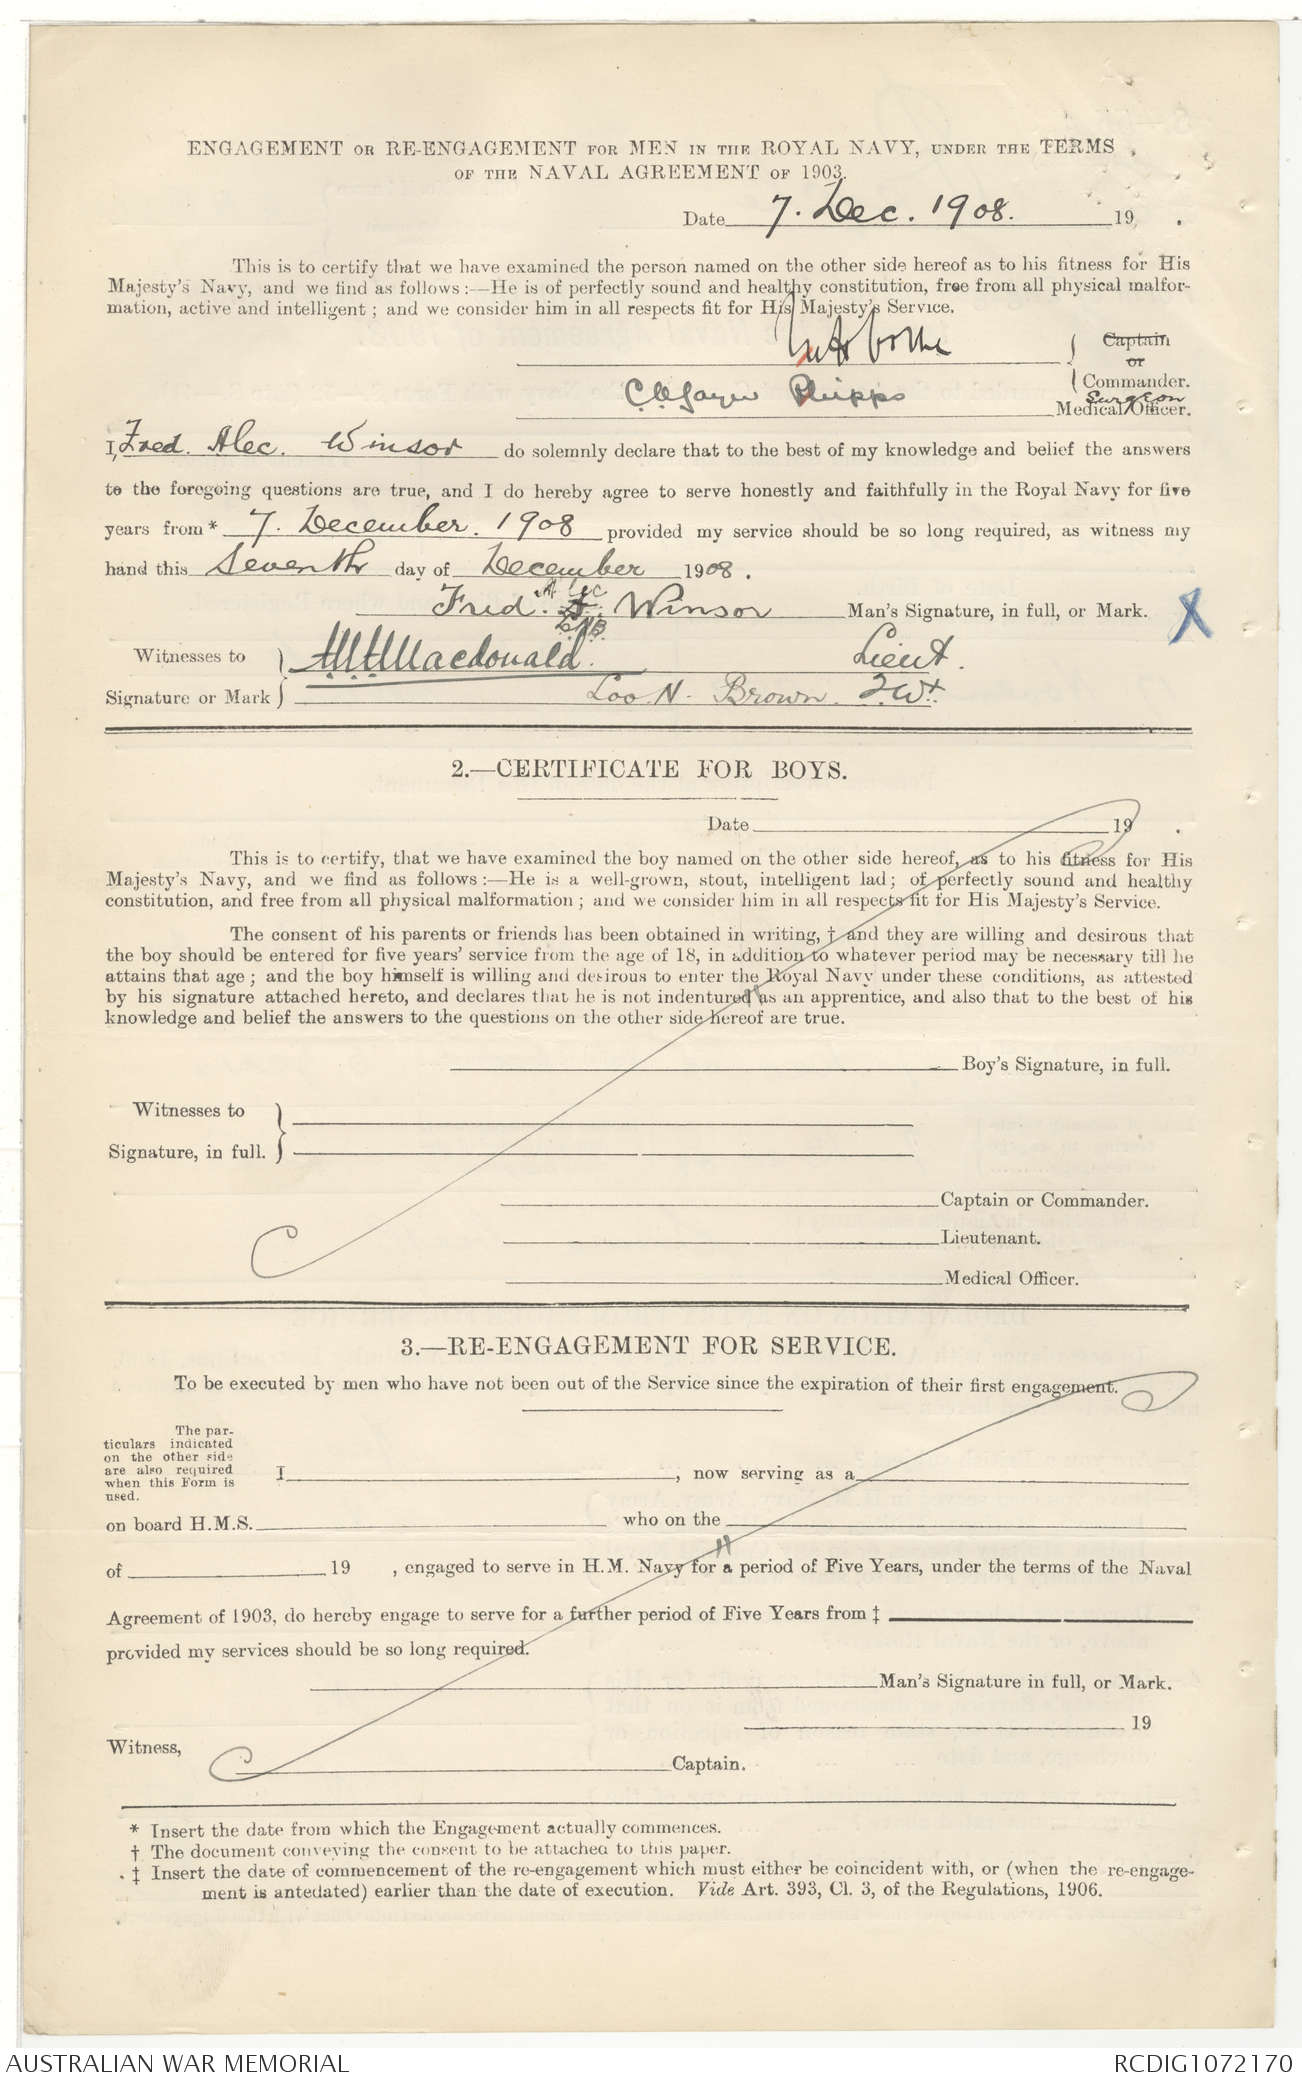 ENGAGEMENT OR RE-ENGAGEMENT FOR MEN IN THE ROYAL NAVY, UNDER THE TERMS
OF THE NAVAL AGREEMENT OF 1903.
Date 7. Dec. 1908. 19 .
This is to certify that we have examined the person named on the other side hereof as to his fitness for His
Majesty's Navy, and we find as follows :—He is of perfectly sound and healthy constitution, free from all physical malfor-
mation, active and intelligent ; and we consider him in all respects fit for His Majesty's Service.
Captain
or
Commander.
Phipps
Surgeon
Medical Officer.
I, Fred. Alec. Winsor do solemnly declare that to the best of my knowledge and belief the answers
to the foregoing questions are true, and I do hereby agree to serve honestly and faithfully in the Royal Navy for five
years from* 7. December. 1908 provided my service should be so long required, as witness my
hand this Seventh day of December 1908.
Alec
Fred. A. Winsor Man's Signature, in full, or Mark. X
Witnesses to
Macdonald. Lieut.
Signature or Mark
N. Brown
2.—CERTIFICATE FOR BOYS.
Date 19 .
This is to certify, that we have examined the boy named on the other side hereof, as to his fitness for His
Majesty's Navy, and we find as follows :—He is a well-grown, stout, intelligent lad; of perfectly sound and healthy
constitution, and free from all physical malformation ; and we consider him in all respects fit for His Majesty's Service.
The consent of his parents or friends has been obtained in writing, † and they are willing and desirous that
the boy should be entered for five years' service from the age of 18, in addition to whatever period may be necessary till he
attains that age ; and the boy himself is willing and desirous to enter the Royal Navy under these conditions, as attested
by his signature attached hereto, and declares that he is not indentured as an apprentice, and also that to the best of his
knowledge and belief the answers to the questions on the other side hereof are true.
Boy's Signature, in full.
Witnesses to
Signature, in full.
Captain or Commander.
Lieutenant.
Medical Officer.
3.—RE-ENGAGEMENT FOR SERVICE.
To be executed by men who have not been out of the Service since the expiration of their first engagement.
The par-
ticulars indicated
on the other side
are also required
when this Form is
used.
I , now serving as a
on board H.M.S. who on the
of 19 , engaged to serve in H.M. Navy for a period of Five Years, under the terms of the Naval
Agreement of 1903, do hereby engage to serve for a further period of Five Years from ‡
provided my services should be so long required.
Man's Signature in full, or Mark.
19
Witness,
Captain.
* Insert the date from which the Engagement actually commences.
† The document conveying the consent to be attached to this paper.
‡ Insert the date of commencement of the re-engagement which must either be coincident with, or (when the re-engage-
ment is antedated) earlier than the date of execution. Vide Art. 393, Cl. 3, of the Regulations, 1906.
AUSTRALIAN WAR MEMORIAL
RCDIG1072170